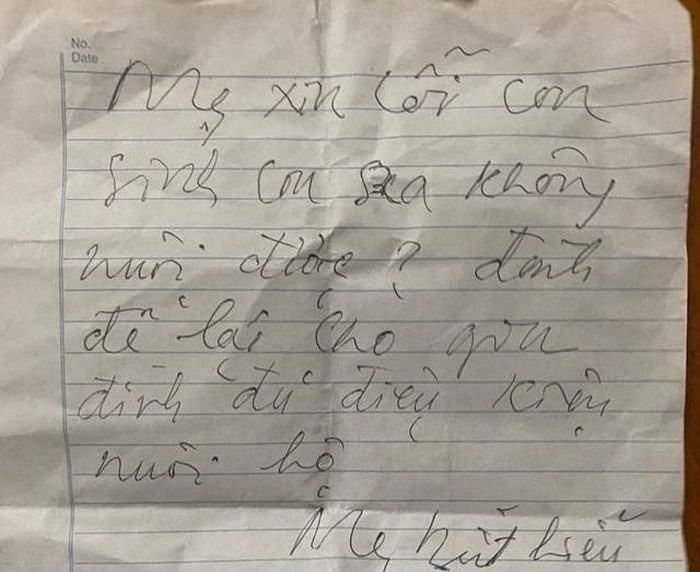 No.
Date
Mẹ xin lỗi con
Sinh con ra không
nuôi được? đành
để lại cho gia
đình đủ điều kiện
nuôi hộ
Mẹ